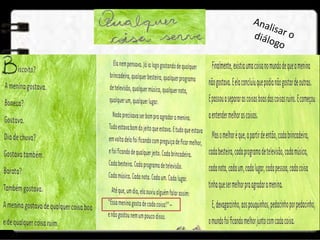 Qualquer
coisa serve
Analisar o
diálogo
Biscoito?
A menina gostava.
Boneca?
Gostava.
Dia de chuva?
Gostava também.
Barata?
Também gostava.
A menina gostava de qualquer coisa boa
e de qualquer coisa ruim.
Ela nem pensava, já ia logo gostando de qualquer
brincadeira, qualquer besteira, qualquer programa
de televisão, qualquer música, qualquer nota,
qualquer um, qualquer lugar.
Nada precisava ser bom pra agradar a menina.
Tudo estava bom do jeito que estava. E tudo que estava
em volta dela foi ficando com preguiça de ficar melhor,
e foi ficando de qualquer jeito. Cada brincadeira.
Cada besteira. Cada programa de televisão.
Cada música. Cada nota. Cada um. Cada lugar.
Até que, um dia, ela ouviu alguém falar assim:
"Essa menina gosta de cada coisa!!" –
e não gostou nem um pouco disso.
Finalmente, existia uma coisa no mundo de que a menina
não gostava. E ela concluiu que podia não gostar de outras.
E passou a separar as coisas boas das coisas ruins. E começou
a entender melhor as coisas.
Mas o melhor é que, a partir de então, cada brincadeira,
cada besteira, cada programa de televisão, cada música,
cada nota, cada um, cada lugar, cada pessoa, cada coisa
tinha que ser melhor pra agradar a menina.
E, devagarinho, aos pouquinhos, pedacinho por pedacinho,
o mundo foi ficando melhor junto com cada coisa.